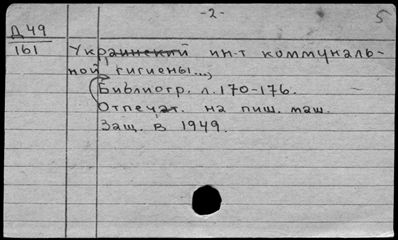 -2-
5
Д 49
161
Украинский ин-т коммуналь-
ной гигиены...,
Библиогр. л. 170-176.
Отпечат. на пиш. маш.
Защ. в 1949.